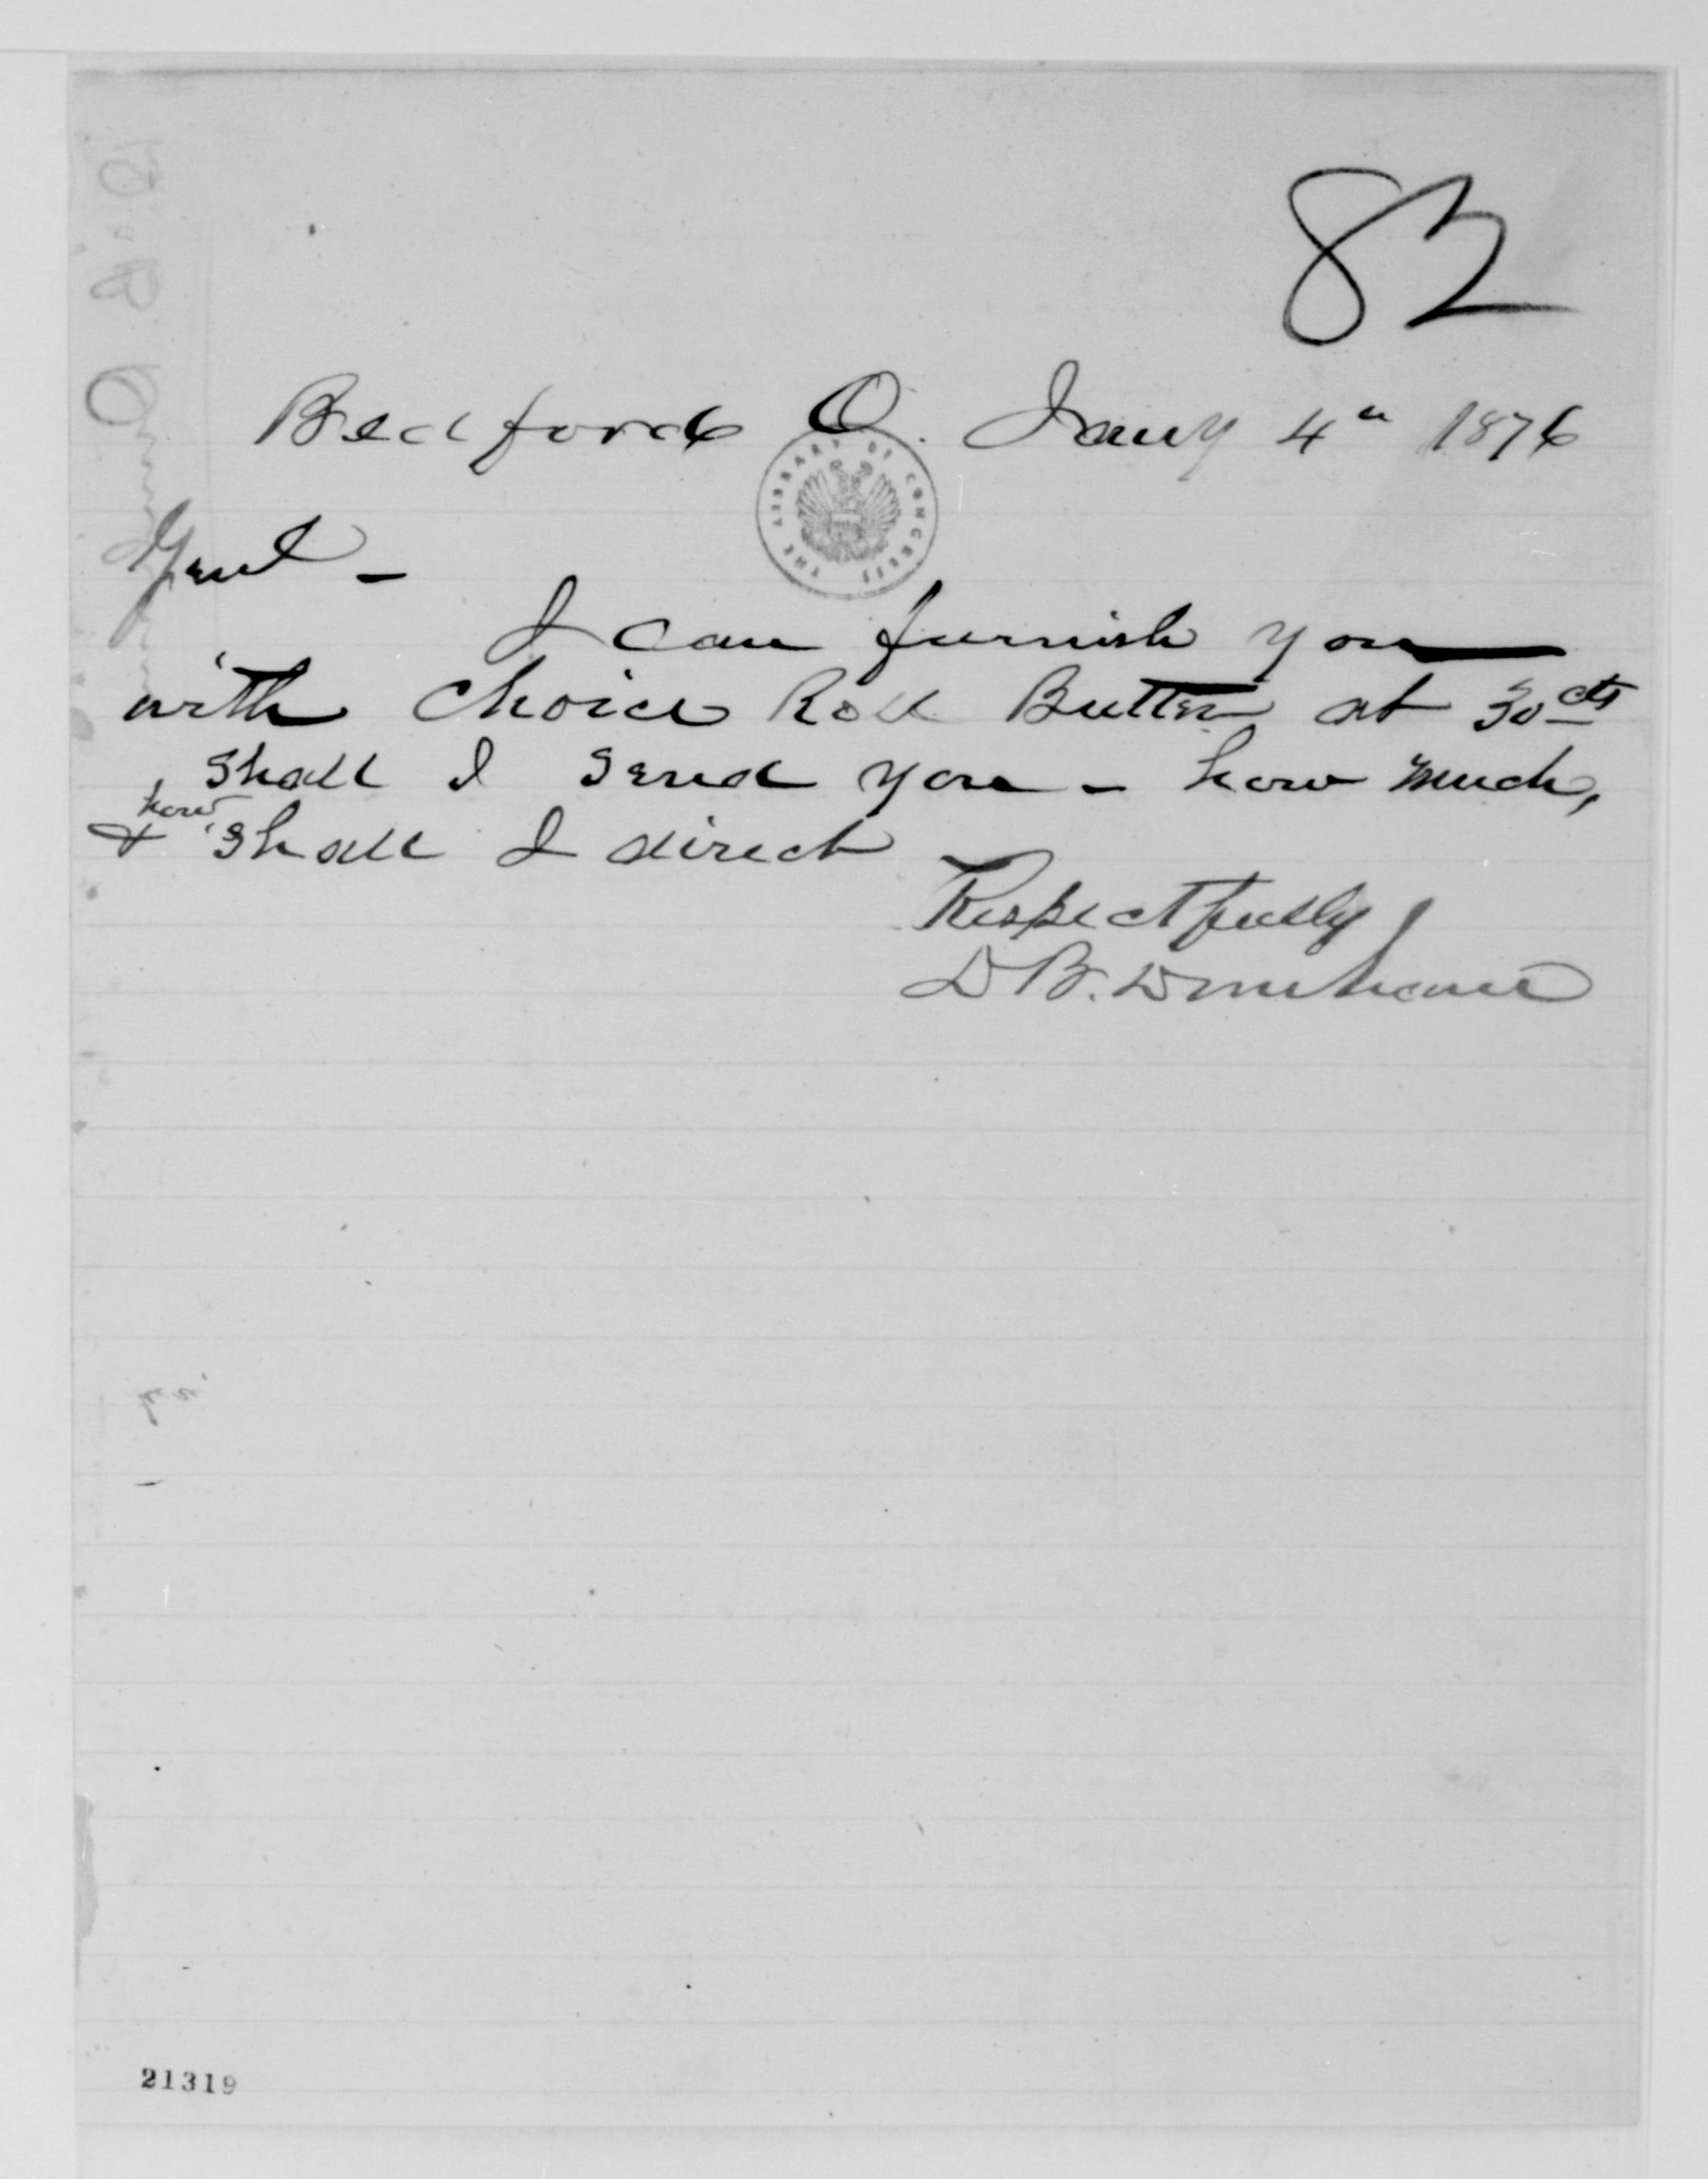 82
Bedford O. Jany 4" 1876
THE LIBRARY OF CONGRESS
Genl -
I can furnish you
with choice Roll Butter at 30 cts
Shall I send you - how much,
& how shall I direct
Respectfully
D B. Dunham
21319